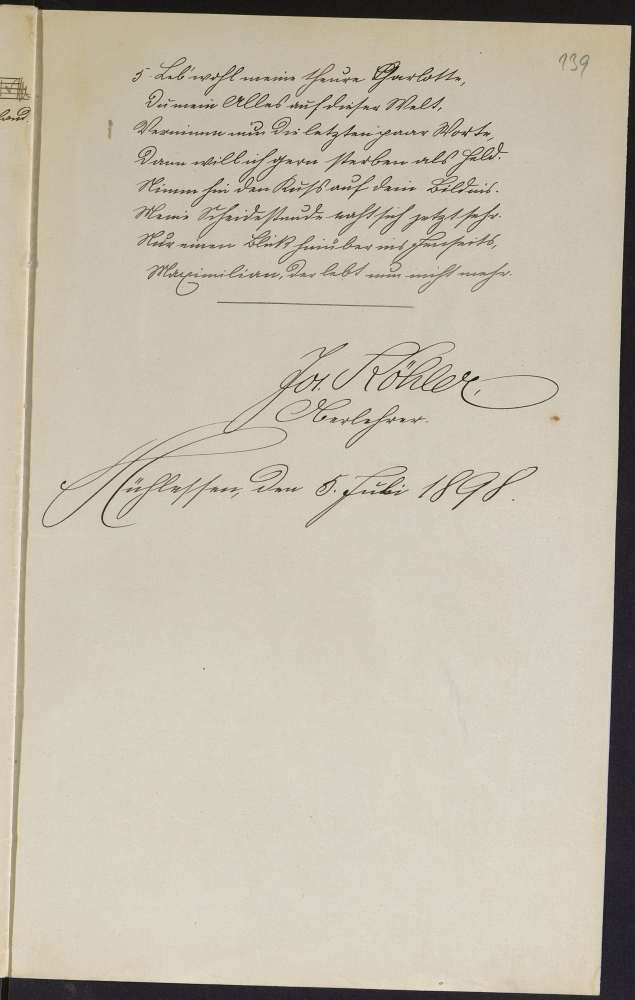 139
5. Leb' wohl meine theure Charlotte,
Du mein Alles auf dieser Welt.
Vernimm nun die letzten paar Worte,
Dann will ich gern sterben als Held.
Nimm hin den Kuss auf dein Bildnis.
Meine Scheidestunde naht sich jetzt sehr.
Nur einen Blick hinüber ins Jenseits,
Maximilian, der lebt nun nicht mehr.
Jos. Köhler,
Oberlehrer.
den 5. Juli 1898.